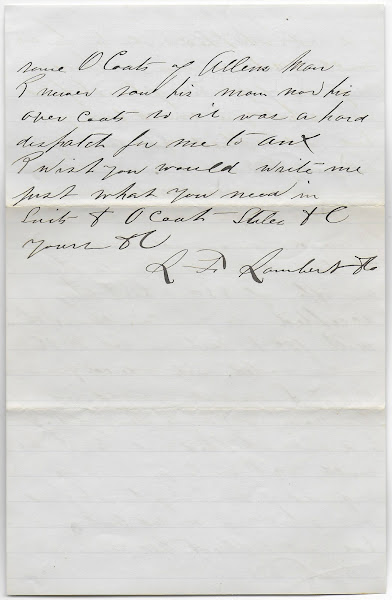 some O Coats of Allens Man
I never saw his man nor his
over coats so it was a hard
dispatch for me to anx
I wish you would write me
just what you need in
Suits & O Coats Styles & C
yours &C
L F Lambert & Co